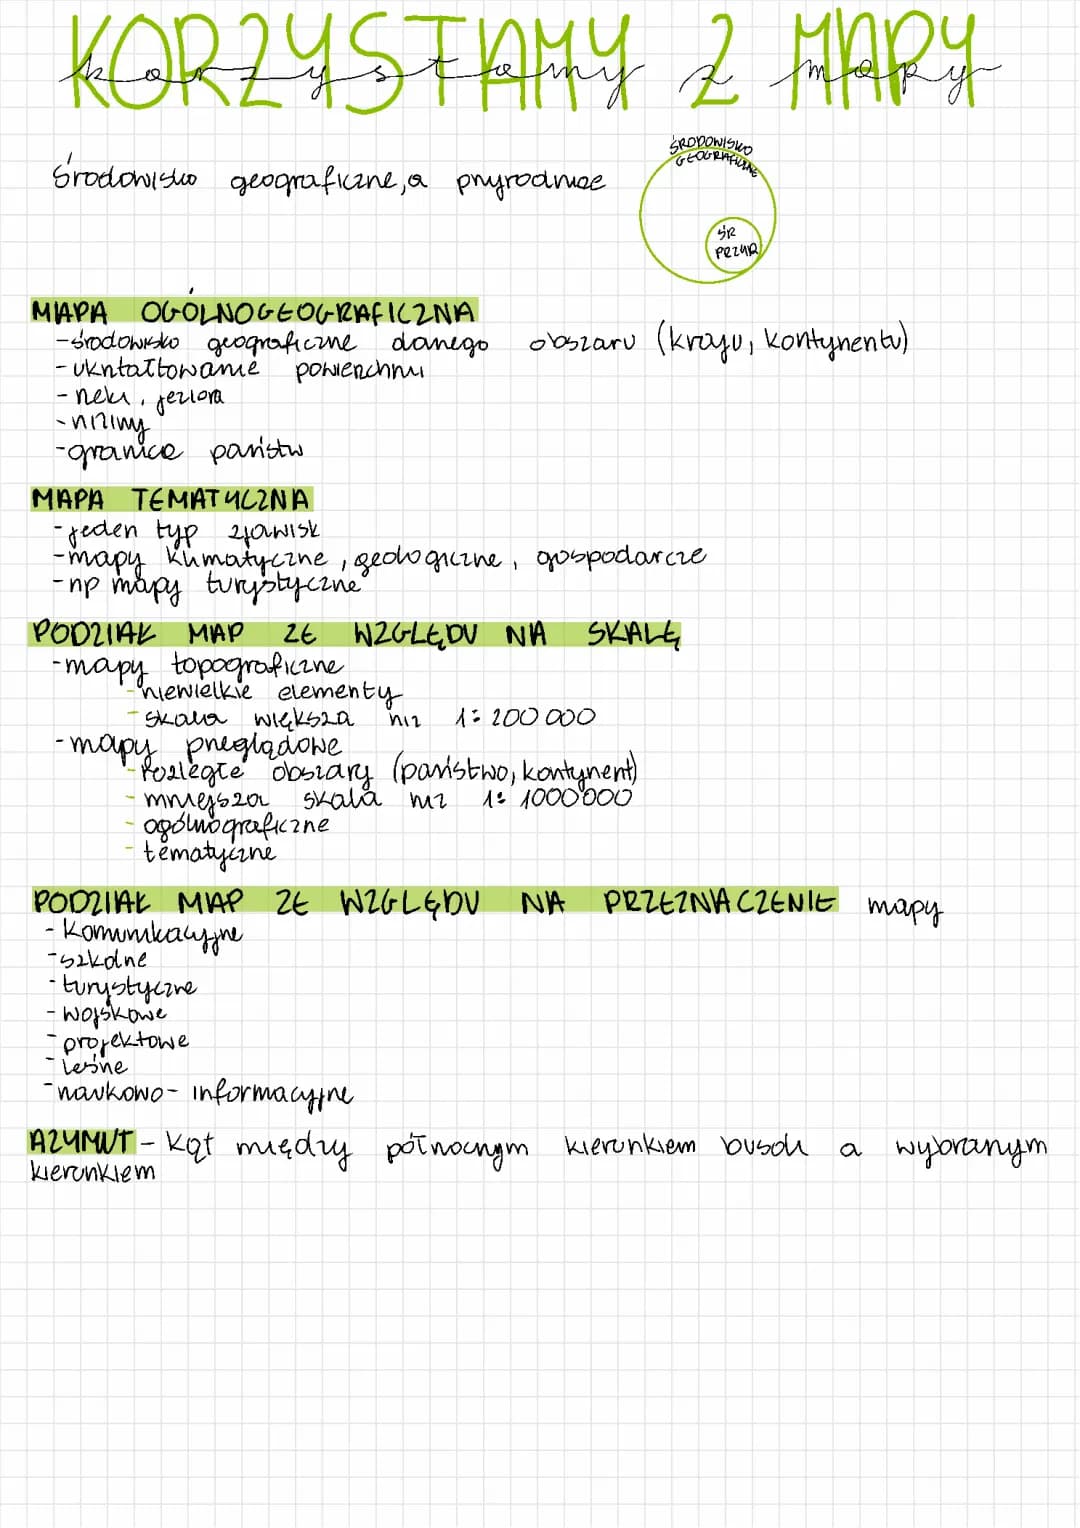 KORZYSTAMY Z MAPY
korzystamy z mapy
ŚRODOWISKO
GEOGRAFICZNE
środowisko geograficzne, a przyrodnicze
ŚR
PRZYR
MAPA OGÓLNOGEOGRAFICZNA
-środowisko geograficzne danego obszaru (kraju, kontynentu)
- ukształtowanie powierzchni
- rzeki, jeziora
- niziny
- granice państw
MAPA TEMATYCZNA
- jeden typ zjawisk
- mapy klimatyczne, geologiczne, gospodarcze
- np mapy turystyczne
PODZIAŁ MAP ZE WZGLĘDU NA SKALĘ
- mapy topograficzne
- niewielkie elementy
- skala większa niż 1:200 000
- mapy przeglądowe
- rozległe obszary (państwo, kontynent)
- mniejsza skala niż 1:1000'000
- ogólnograficzne
- tematyczne
PODZIAŁ MAP ZE WZGLĘDU NA PRZEZNACZENIE mapy
- komunikacyjne
- szkolne
- turystyczne
- wojskowe
- projektowe
- leśne
- naukowo-informacyjne
AZYMUT - kąt między północnym kierunkiem busoli a wybranym
kierunkiem